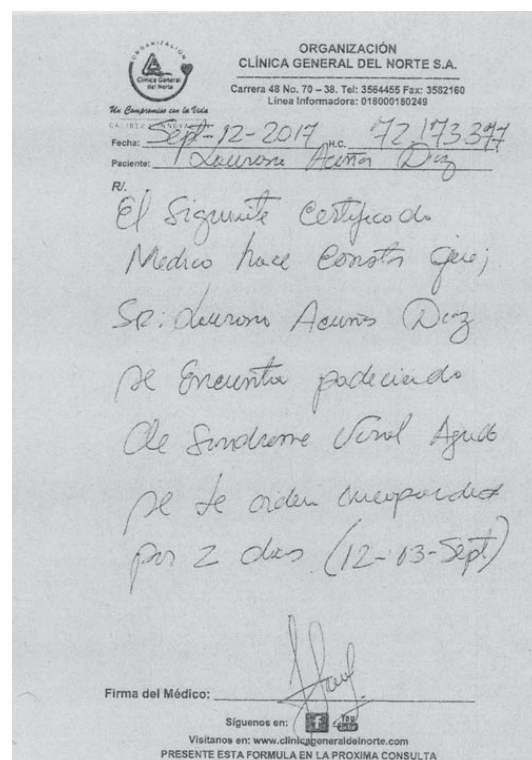 ORGANIZACIÓN
Clínica General
del Norte
Un Compromiso con la Vida
CALIDEZ E INNOVACIÓN
ORGANIZACIÓN
CLÍNICA GENERAL DEL NORTE S.A.
Carrera 48 No. 70 – 38. Tel: 3564455 Fax: 3582160
Línea Informadora: 018000180249
Fecha: Sept-12-2017 H.C. 72.173.377
Paciente: Acuña Diaz
R/.
El Siguiente Certificado
Medico hace Constar que;
Sr. Acuña Diaz
se Encuentra padeciendo
de Sindrome Viral Agudo
se le orden incapacidad
por 2 dias (12-13-Sept)
Firma del Médico:
Síguenos en: f You Tube
Visítanos en: www.clinicageneraldelnorte.com
PRESENTE ESTA FORMULA EN LA PROXIMA CONSULTA